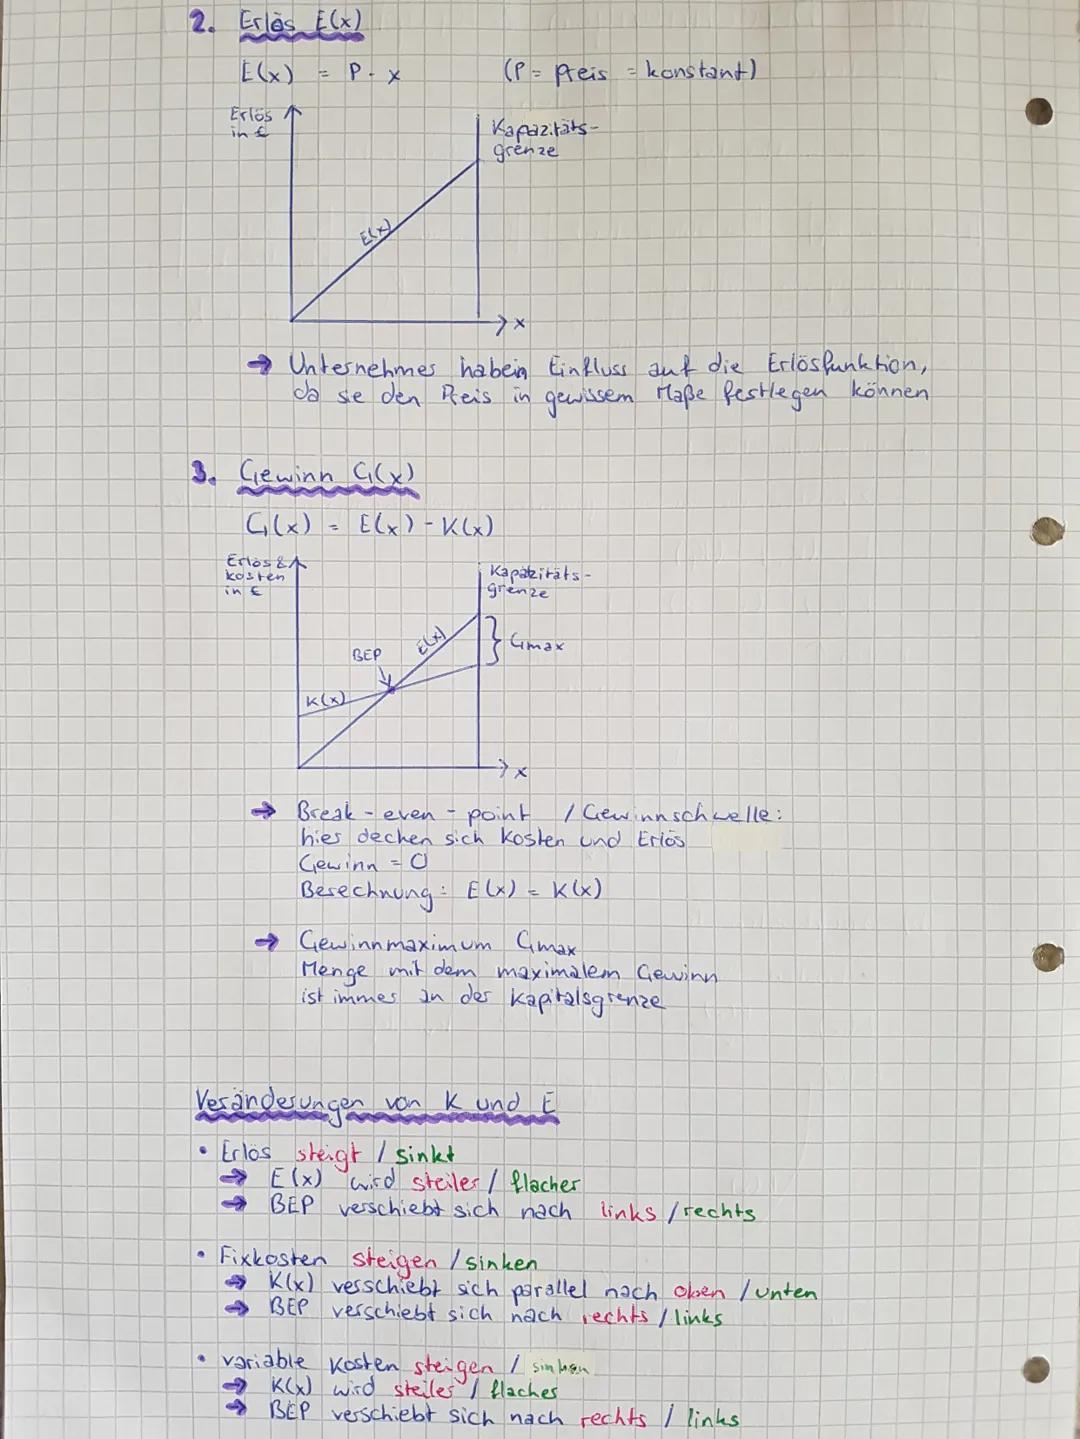 2. Erlös E(x)
E(x) = P · x (P = Preis = konstant)
Erlös
in €
Kapazitäts-
grenze
E(x)
x
→ Unternehmer haben Einfluss auf die Erlösfunktion,
da sie den Preis in gewissem Maße festlegen können
3. Gewinn G(x)
G(x) = E(x) - K(x)
Erlös &
kosten
in €
Kapazitäts-
grenze
E(x)
Gmax
BEP
K(x)
x
→ Break-even-point / Gewinnschwelle:
hier decken sich Kosten und Erlös
Gewinn = 0
Berechnung: E(x) = K(x)
→ Gewinnmaximum Gmax
Menge mit dem maximalem Gewinn
ist immer an der Kapitalsgrenze
Veränderungen von K und E
• Erlös steigt / sinkt
→ E(x) wird steiler / flacher
→ BEP verschiebt sich nach links / rechts
• Fixkosten steigen / sinken
→ K(x) verschiebt sich parallel nach oben / unten
→ BEP verschiebt sich nach rechts / links
• variable Kosten steigen / sinken
→ K(x) wird steiler / flacher
→ BEP verschiebt sich nach rechts / links